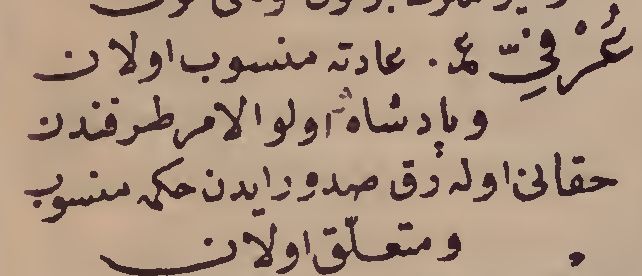 عُرْفِىّ عم. عادته منسوب اولان
وپادشاه اولوا الامر طرفندن
حقانى اوله رق صدور ايدن حكمه منسوب
ومتعلّق اولان